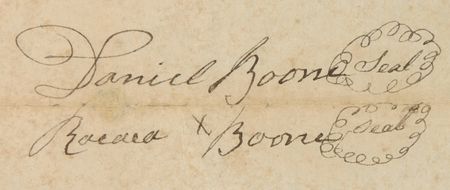 Daniel Boone Seal
Racaca X Boone Seal